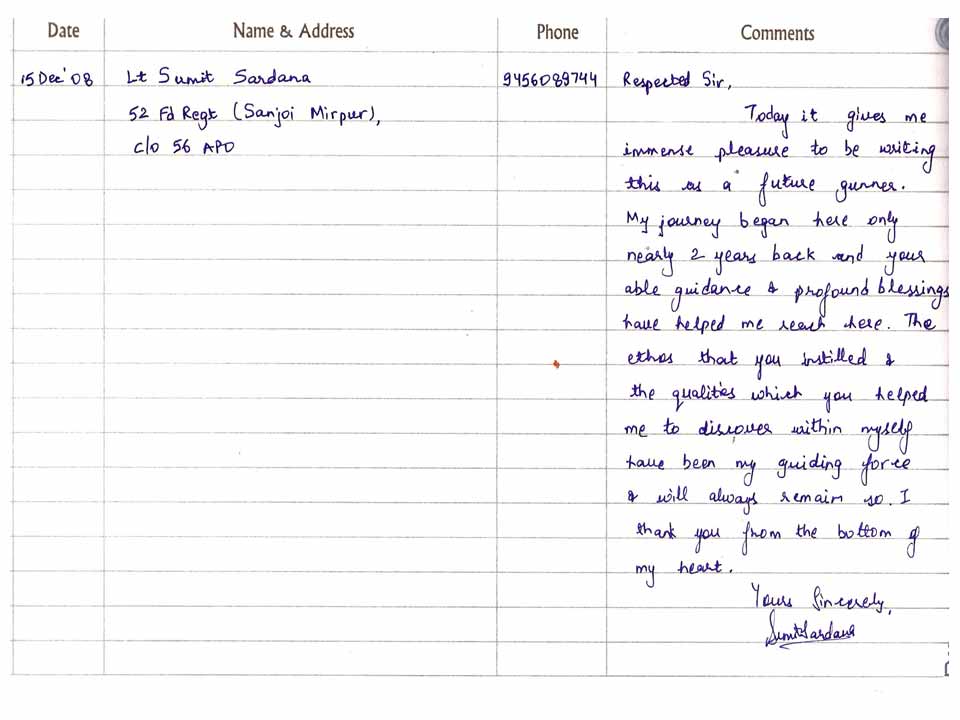 Date Name & Address Phone Comments
15 Dec' 08 Lt Sumit Sardana 9456089744 Respected Sir,
52 Fd Regt (Sanjoi Mirpur), Today it gives me
c/o 56 APO immense pleasure to be writing
this as a future gunner.
My journey began here only
nearly 2 years back and your
able guidance & profound blessings
have helped me reach here. The
ethos that you instilled &
the qualities which you helped
me to discover within myself
have been my guiding force
& will always remain so. I
thank you from the bottom of
my heart.
Yours Sincerely,
Sumit Sardana